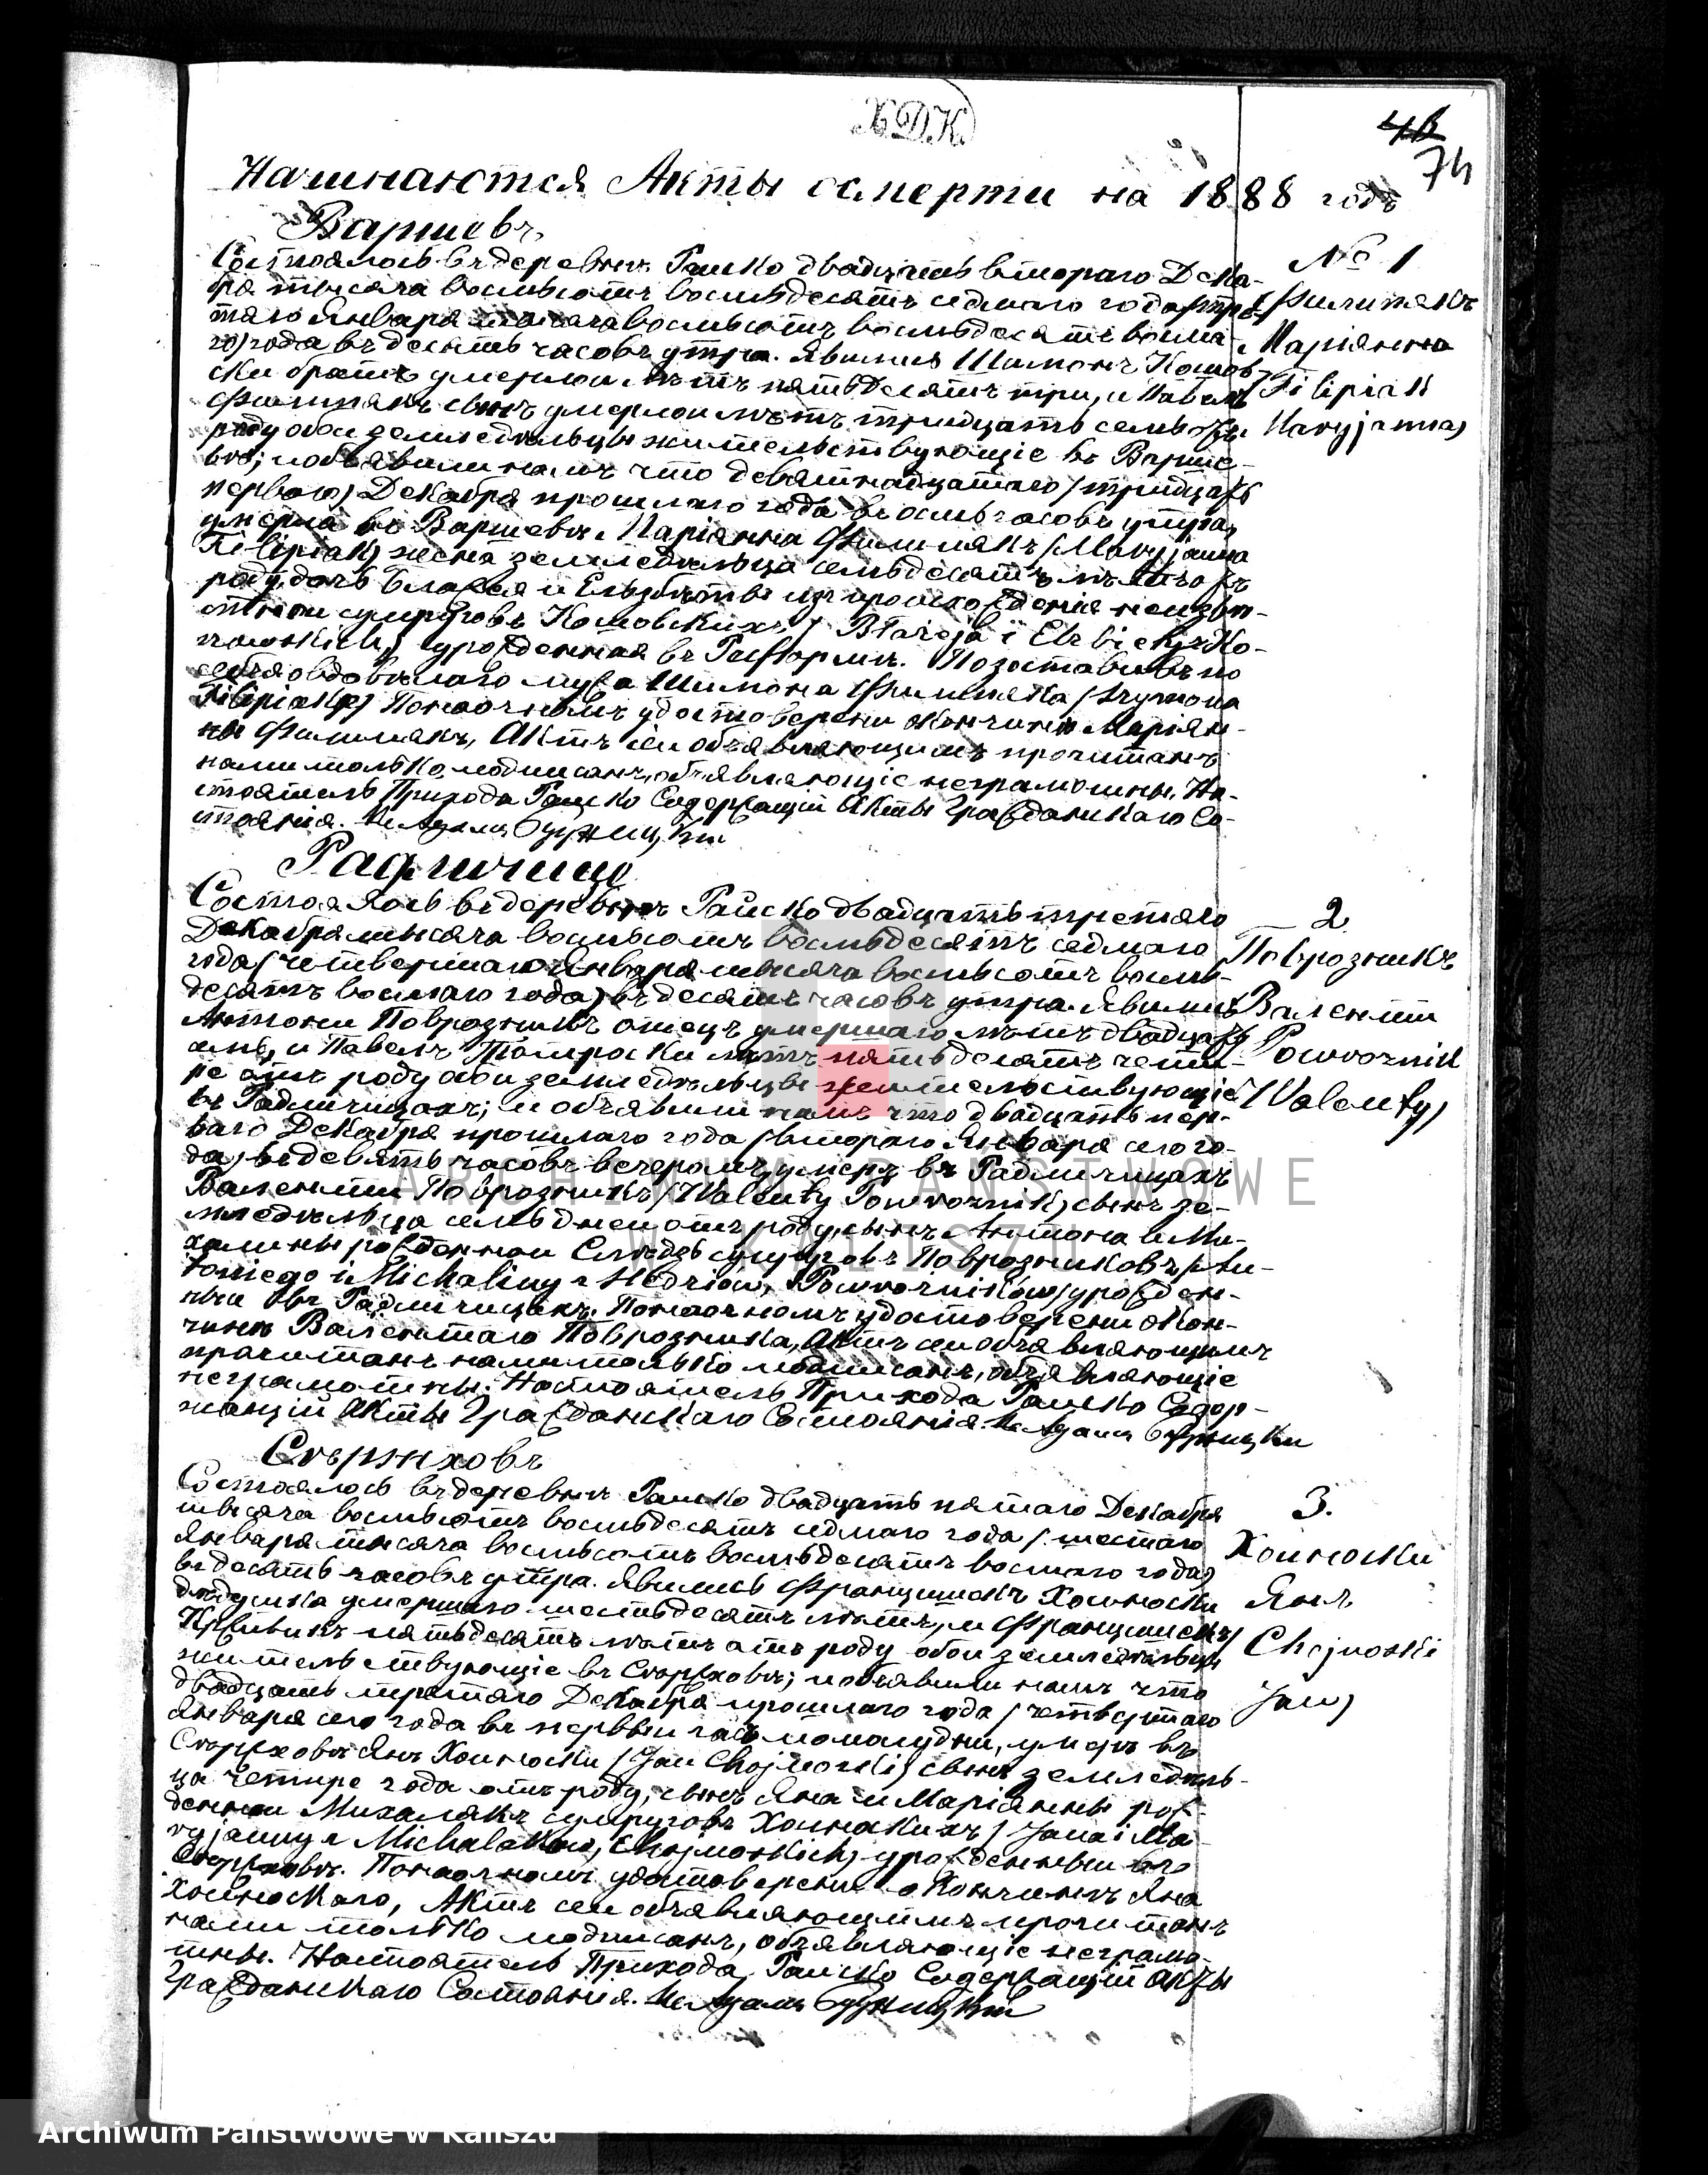 Х.Д.К.
4в
74
Начинаются Акты осмерти на 1888 годъ
Варшевъ
№ 1
Филипякъ
Маріянна
Filipiak
Maryjanna)
Состоялось въ деревнѣ Раиско двадцать втораго Дека-
бря тысяча восемьсотъ восемьдесятъ седмаго года /тре-
тяго Января тысяча восемьсотъ восемьдесятъ восма-
го) года въ десять часовъ утра. Явились Шимонъ Комов-
ски братъ умершои лѣтъ пятьдесятъ три, и Павелъ
Филипякъ сынъ умершои лѣтъ тридцать семь отъ
роду оба земледѣльцы жительствующіе въ Варше-
вѣ; и объявили намъ что девятнадцатаго /тридцать
перваго) Декабря прошлаго года въ осмь часовъ утра,
умерла въ Варшевѣ Маріянна Филипякъ /Maryjanna
Filipiak) жена земледѣльца семьдесятъ лѣтъ отъ
роду, дочь Блажея и Ельзбѣты изъ происхожденія неизвѣ-
стнои супруговъ Комовскихъ / Błażeja i Elżbiety z Ko-
mowskich) урожденная въ Реформѣ. Позоставивъ по
себѣ овдовѣлаго мужа Шимона Филипяка /Szymona
Filipiaka) Понаочномъ удостоверени окончинѣ Маріян-
ны Филипякъ, Актъ сеи объявляющимъ прочитанъ
нами только подписанъ, объявляющіе неграмотны. На-
стоятель Прихода Раиско Содержащіи Акты Гражданскаго Со-
стоянія. Кс Адамъ
Радличице
2.
Поврозникъ
Валенти
Powroznik
Walenty)
Состоялось въ деревнѣ Раиско двадцать третяго
Декабря тысяча восемьсотъ восемьдесятъ седмаго
года /четвертаго Января тысяча восемьсотъ восемь-
десятъ восмаго года) въ десять часовъ утра. Явились
Антони Поврозникъ отецъ умершаго лѣтъ двадцать
семь, и Павелъ лѣтъ пятьдесятъ чети-
ре отъ роду оба земледѣльцы жительствующіе
въ Радличицахъ; и объявили намъ что двадцать пер-
ваго Декабря прошлаго года /втораго Января сего го-
да) въ девять часовъ вечеромъ, умеръ въ Радличицахъ
Валенти Поврозникъ /Walenty Powroznik) сынъ зе-
мледѣльца семь днеи отъ роду, сынъ Антона и Ми-
халины рожденнои супруговъ Поврозниковъ /An-
toniego i Michaliny z Powrozników) урожден-
ныи въ Радличицахъ. Понаочномъ удостоверени окон-
чинѣ Валентаго Поврозника, Актъ сеи объявляющимъ
прочитанъ нами только подписанъ, объявляющіе
неграмотны. Настоятель Прихода Раиско Содер-
жащіи Акты Гражданскаго Состоянія. Кс Адамъ
Сержховъ
3.
Хоиноски
Янъ
Chojnoski
Jan)
Состоялось въ деревнѣ Раиско двадцать пятаго Декабря
тысяча восемьсотъ восемьдесятъ седмаго года / шестаго
Января тысяча восемьсотъ восемьдесятъ восмаго года)
въ десять часовъ утра. Явились Францишекъ Хоиноски
дѣдушка умершаго шестьдесятъ лѣтъ, и Францишекъ
пятьдесятъ лѣтъ отъ роду обои земледѣльцы
жительствующіе въ Сержховѣ; и объявили намъ что
двадцать третяго Декабря прошлаго года / четвертаго
Января сего года въ первыи часъ пополудни, умеръ въ
Сержховѣ Янъ Хоиноски /Jan Chojnoski) сынъ земледѣль-
ца четире года отъ роду, сынъ Яна и Маріянны рож-
деннои Михалякъ супруговъ Хоиноскихъ / Jana i Ma-
ryjanny z Michalaków, Chojnoskich) урожденныи въ
Сержховѣ. Понаочномъ удостоверени о кончинѣ Яна
Хоиноскаго, Актъ сеи объявляющимъ прочитанъ
нами только подписанъ, объявляющіе неграмо-
тны. Настоятель Прихода Раиско Содержащіи Акты
Гражданскаго Состоянія. Кс Адамъ
ARCHIWUM PAŃSTWOWE
W KALISZU
Archiwum Państwowe w Kaliszu